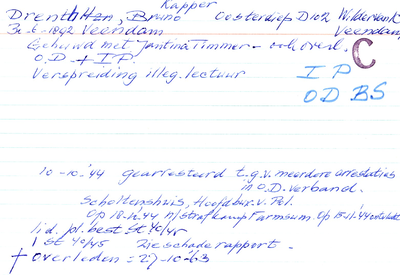 Kapper
Drenth Hzn, Bruno Oosterdiep D102 Wildervank
3-6-1892 Veendam Veendam
Gehuwd met Jantina Timmer - ook overl. C
O.D. + I.P. I P
Verspreiding illeg. lectuur O D BS
10-10-'44 gearresteerd t.g.v. meerdere arrestaties
in O.D. verband.
Scholtenshuis, Hoofdbur. v. Pol.
Op 18-11-'44 n/strafkamp Farmsum. Op
lid. pl. best St 40/45
1 st 40/45 zie schade rapport.
† overleden = 27-10-'63